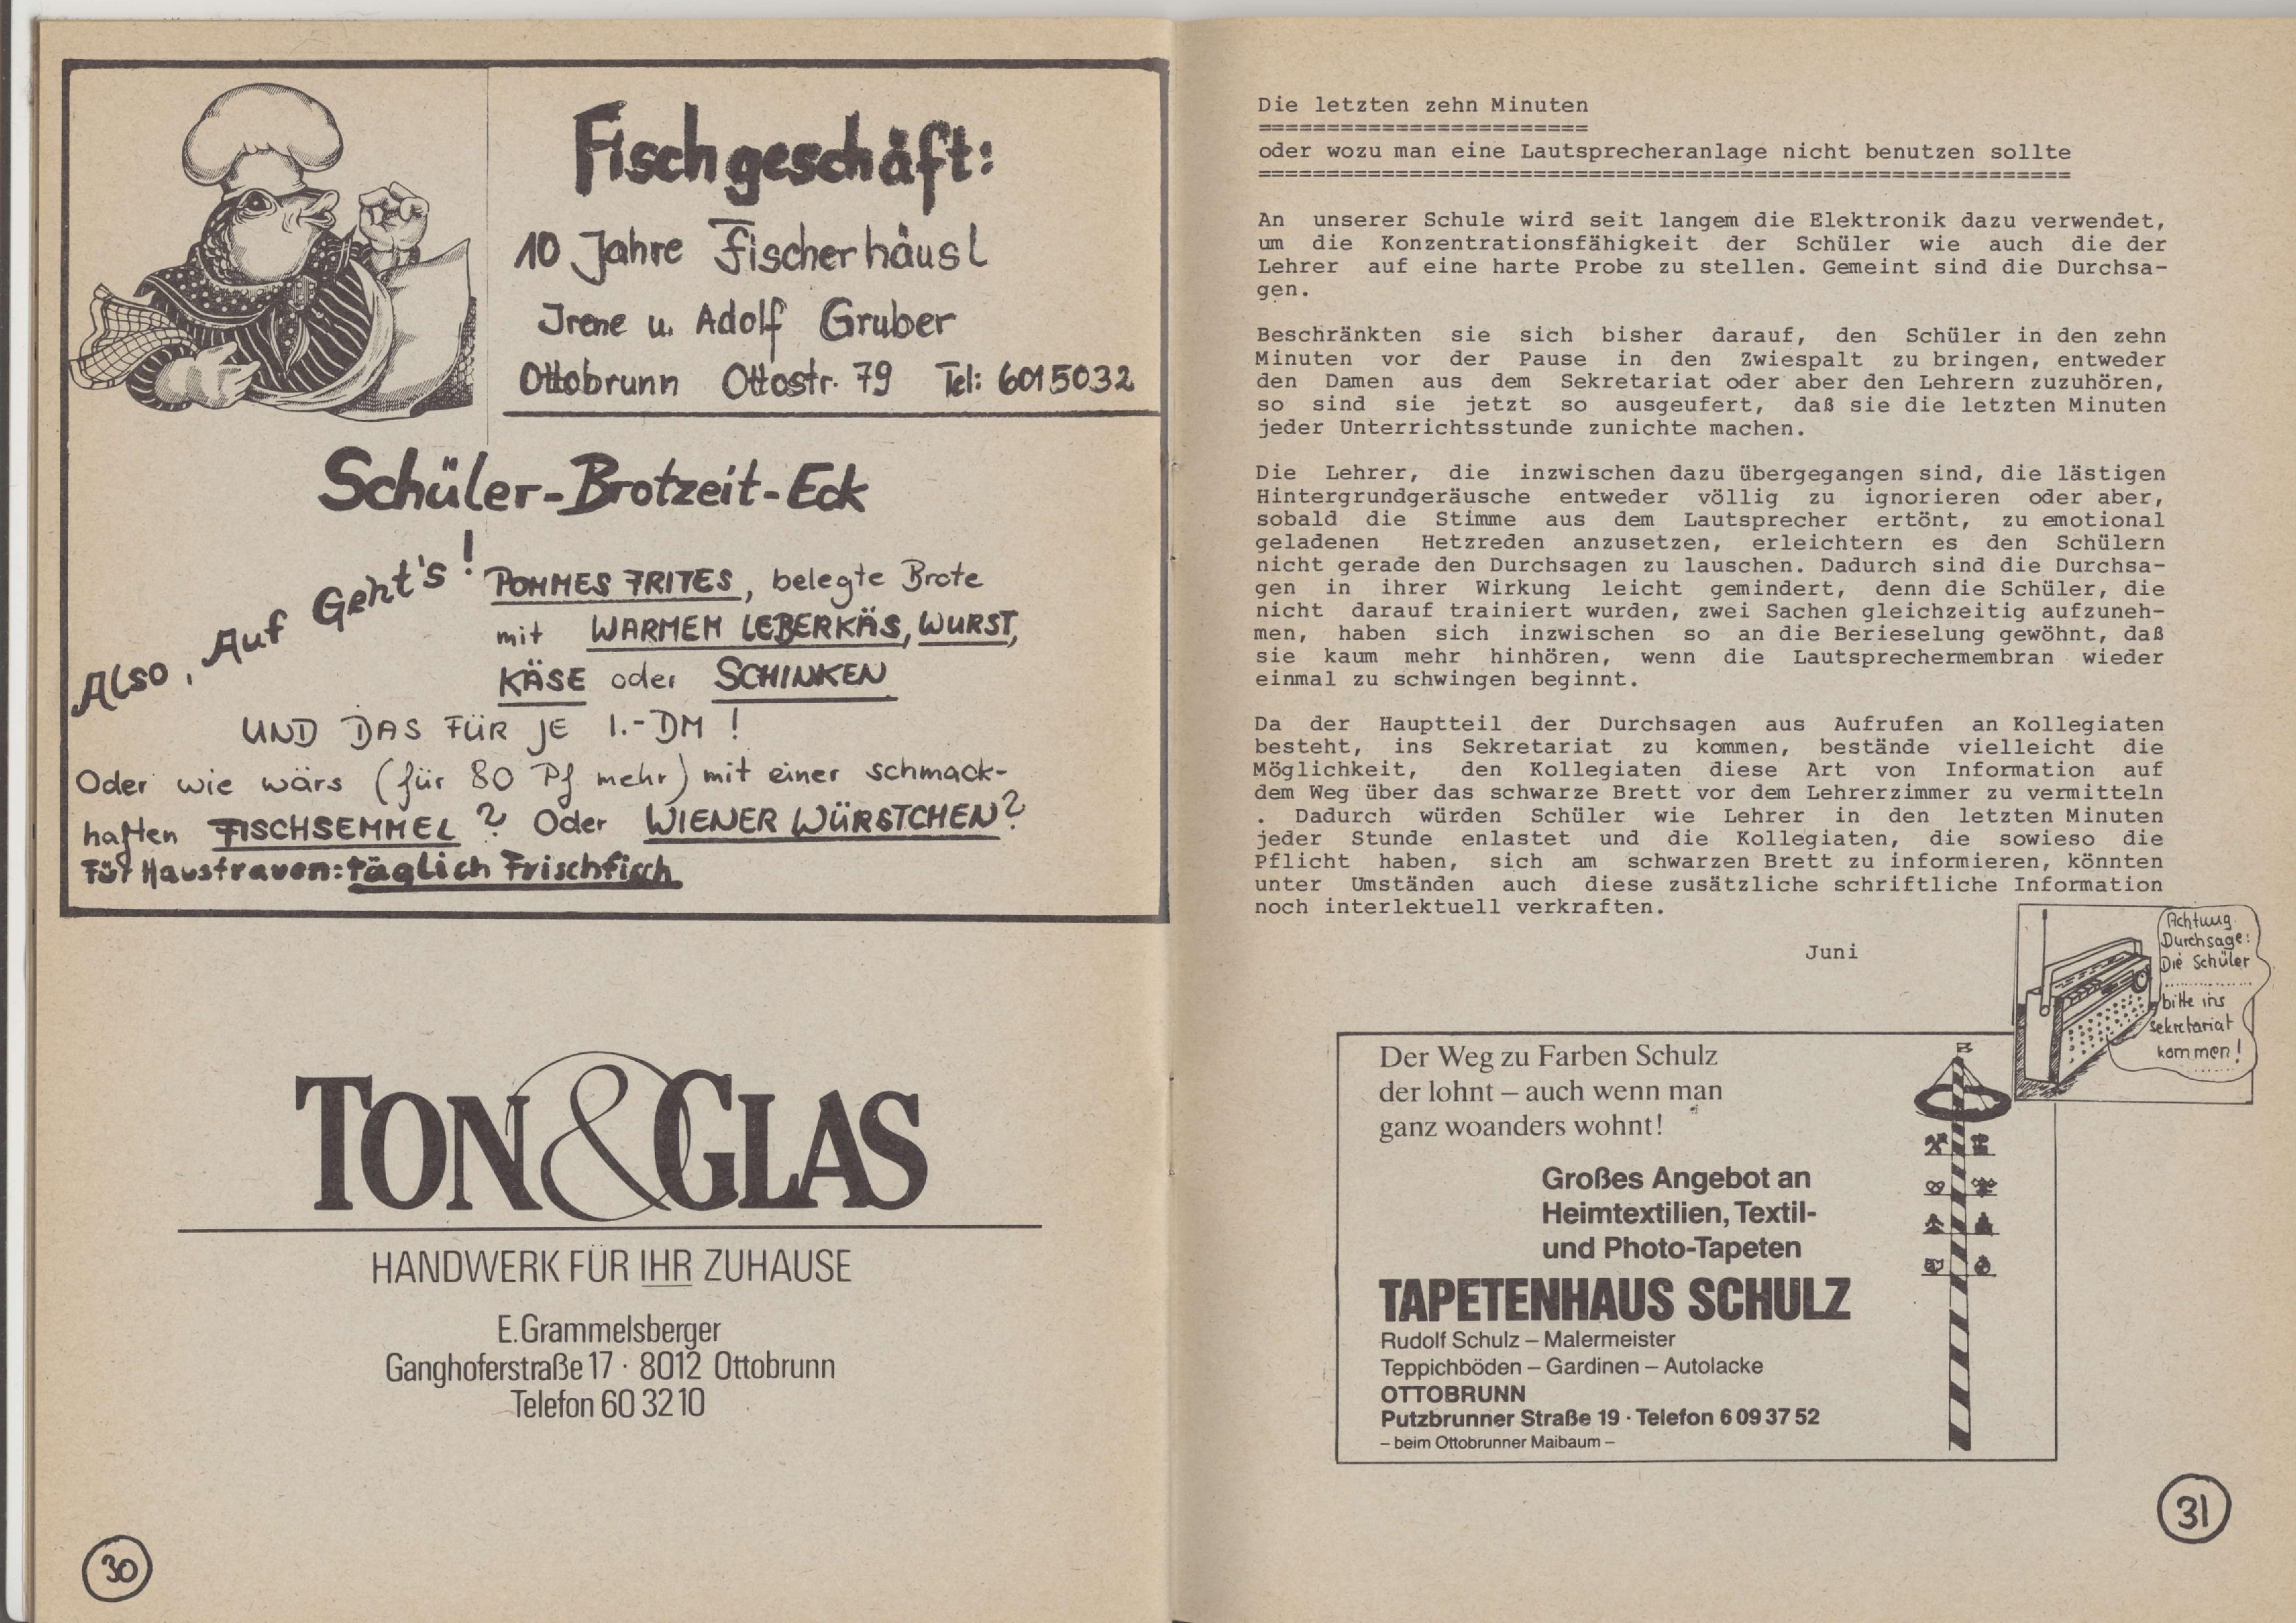 Fischgeschäft:
10 Jahre Fischerhäusl
Irene u. Adolf Gruber
Ottobrunn Ottostr. 79 Tel: 6015032
Schüler-Brotzeit-Eck
Also, Auf Geht's!
POMMES FRITES, belegte Brote
mit WARMEM LEBERKÄS, WURST,
KÄSE oder SCHINKEN
UND DAS FÜR JE 1.-DM!
Oder wie wärs (für 80 Pf mehr) mit einer schmack-
haften FISCHSEMMEL? Oder WIENER WÜRSTCHEN?
Für Hausfrauen: täglich Frischfisch
TON&GLAS
HANDWERK FÜR IHR ZUHAUSE
E.Grammelsberger
Ganghoferstraße 17 · 8012 Ottobrunn
Telefon 60 32 10
30
Die letzten zehn Minuten
========================
oder wozu man eine Lautsprecheranlage nicht benutzen sollte
===========================================================
An unserer Schule wird seit langem die Elektronik dazu verwendet,
um die Konzentrationsfähigkeit der Schüler wie auch die der
Lehrer auf eine harte Probe zu stellen. Gemeint sind die Durchsa-
gen.
Beschränkten sie sich bisher darauf, den Schüler in den zehn
Minuten vor der Pause in den Zwiespalt zu bringen, entweder
den Damen aus dem Sekretariat oder aber den Lehrern zuzuhören,
so sind sie jetzt so ausgeufert, daß sie die letzten Minuten
jeder Unterrichtsstunde zunichte machen.
Die Lehrer, die inzwischen dazu übergegangen sind, die lästigen
Hintergrundgeräusche entweder völlig zu ignorieren oder aber,
sobald die Stimme aus dem Lautsprecher ertönt, zu emotional
geladenen Hetzreden anzusetzen, erleichtern es den Schülern
nicht gerade den Durchsagen zu lauschen. Dadurch sind die Durchsa-
gen in ihrer Wirkung leicht gemindert, denn die Schüler, die
nicht darauf trainiert wurden, zwei Sachen gleichzeitig aufzuneh-
men, haben sich inzwischen so an die Berieselung gewöhnt, daß
sie kaum mehr hinhören, wenn die Lautsprechermembran wieder
einmal zu schwingen beginnt.
Da der Hauptteil der Durchsagen aus Aufrufen an Kollegiaten
besteht, ins Sekretariat zu kommen, bestände vielleicht die
Möglichkeit, den Kollegiaten diese Art von Information auf
dem Weg über das schwarze Brett vor dem Lehrerzimmer zu vermitteln
. Dadurch würden Schüler wie Lehrer in den letzten Minuten
jeder Stunde enlastet und die Kollegiaten, die sowieso die
Pflicht haben, sich am schwarzen Brett zu informieren, könnten
unter Umständen auch diese zusätzliche schriftliche Information
noch interlektuell verkraften.
Juni
Achtung
Durchsage:
Die Schüler
..............
bitte ins
Sekretariat
kommen!
Der Weg zu Farben Schulz
der lohnt – auch wenn man
ganz woanders wohnt!
Großes Angebot an
Heimtextilien, Textil-
und Photo-Tapeten
TAPETENHAUS SCHULZ
Rudolf Schulz – Malermeister
Teppichböden – Gardinen – Autolacke
OTTOBRUNN
Putzbrunner Straße 19 · Telefon 6 09 37 52
– beim Ottobrunner Maibaum –
31